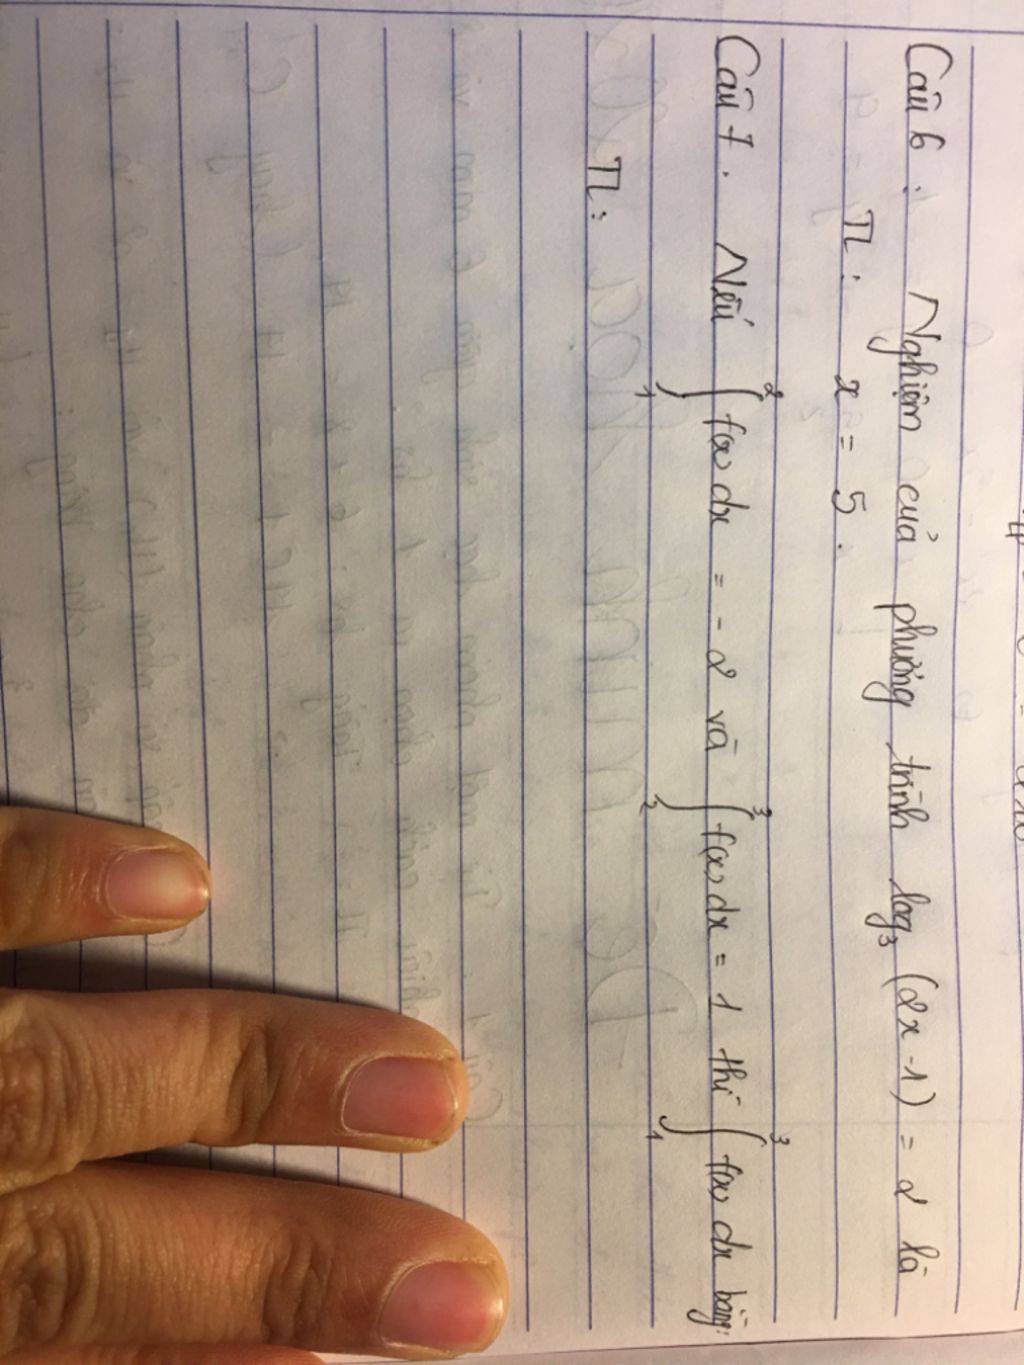 Câu 6 : Nghiệm của phương trình log₃ (2x -1) = 2 là
TL : x = 5 .
Câu 7 . Nếu ∫₁² f(x) dx = - 2 và ∫₂³ f(x) dx = 1 thì ∫₁³ f(x) dx bằng:
TL :